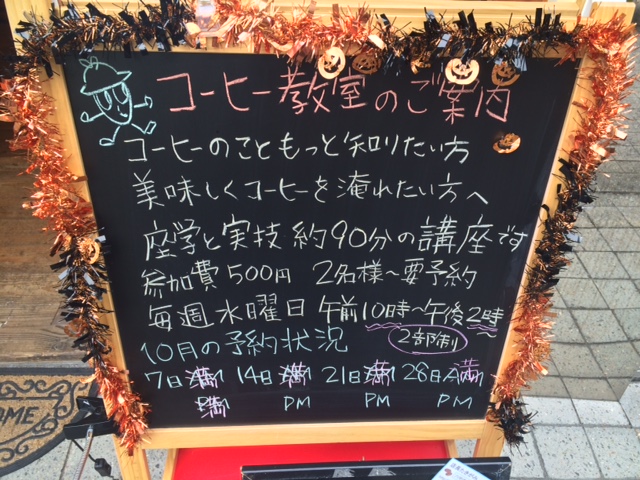 コーヒー教室のご案内
コーヒーのこともっと知りたい方
美味しくコーヒーを淹れたい方へ
座学と実技約90分の講座です
参加費500円 2名様~要予約
毎週水曜日 午前10時~午後2時
10月の予約状況 2部制
7日満 14日満 21日満 28日AM満
満 PM PM PM
OME